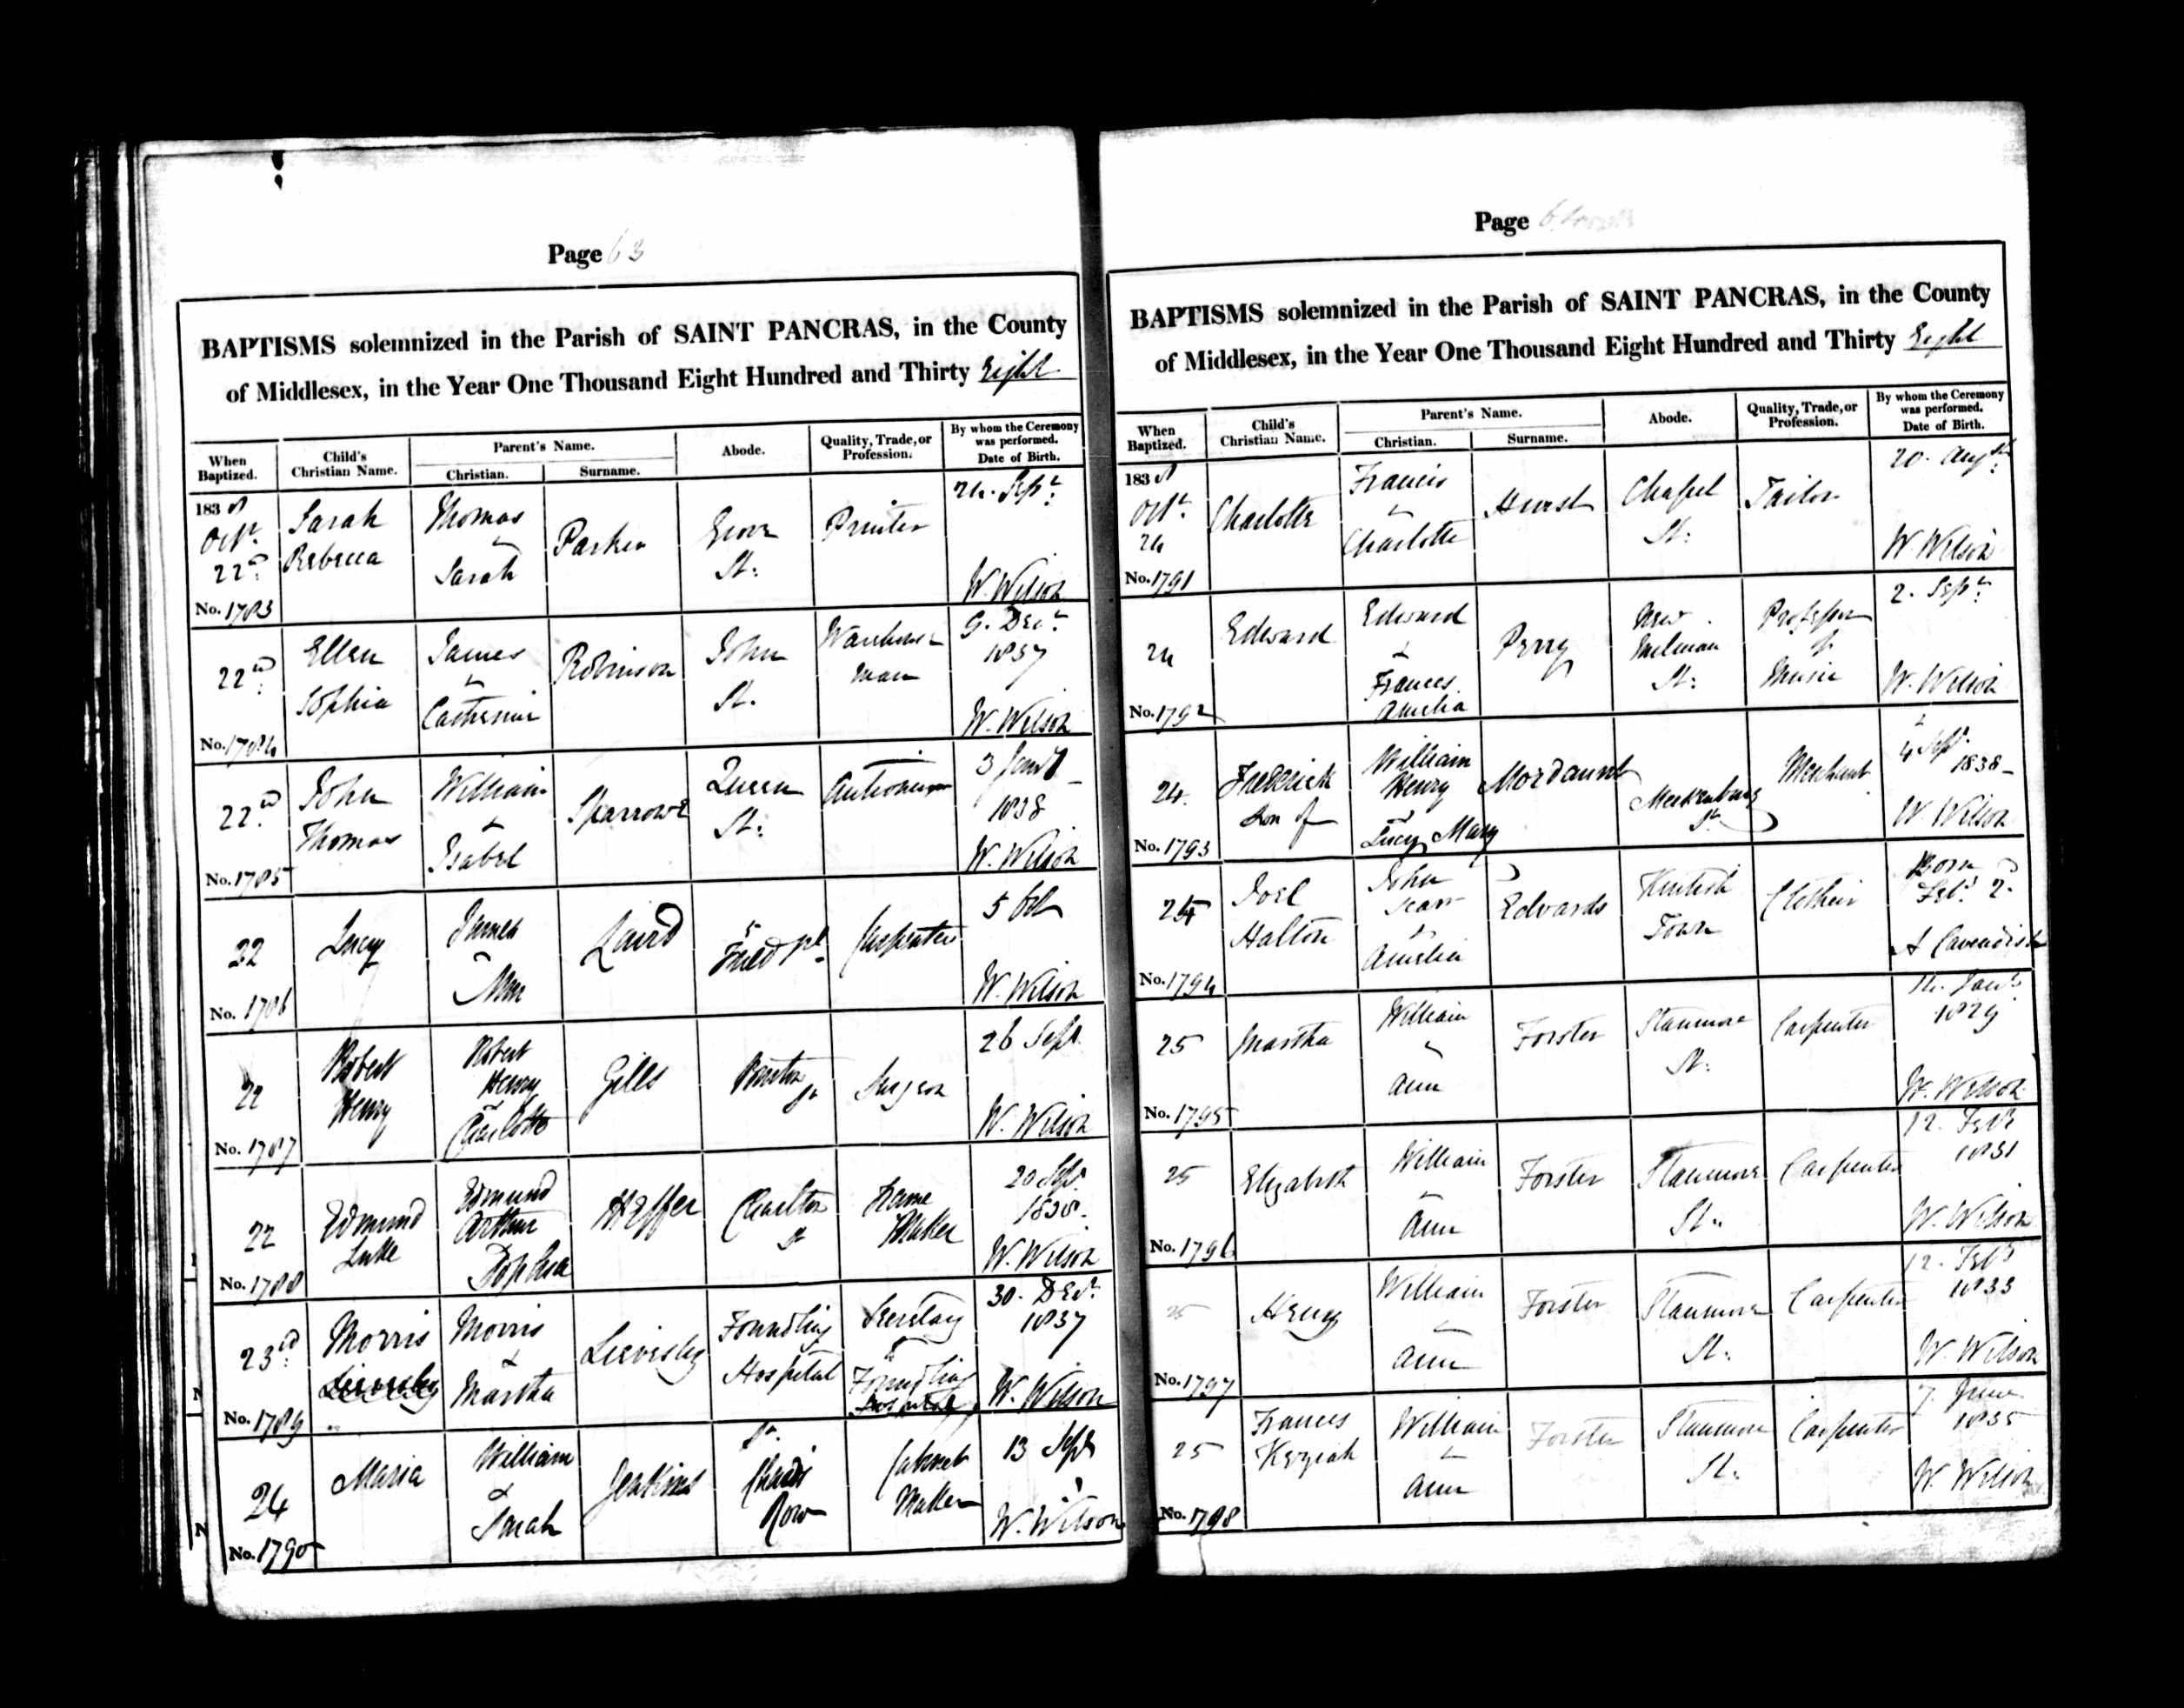 Page 63
BAPTISMS solemnized in the Parish of SAINT PANCRAS, in the County
of Middlesex, in the Year One Thousand Eight Hundred and Thirty Eight
When Baptized. Child's Christian Name. Parent's Name. Christian. Surname. Abode. Quality, Trade, or Profession. By whom the Ceremony was performed. Date of Birth.
1838 Octr. 22d. Sarah Rebecca Thomas & Sarah Parker Grove St: Printer 24. Sepr. W. Wilson
No. 1783
22nd Ellen Sophia James & Catherine Robinson John St. Warehouse man 9. Decr. 1837 W. Wilson
No. 1784
22nd John Thomas William & Isabel Sparrow Queen St: 3 Jany 1838 W. Wilson
No. 1785
22 Lucy James Laird Carpenter 5 Oct W. Wilson
No. 1786
22 Robert Henry Robert Henry & Charlotte Gills Surgeon 26 Sept. W. Wilson
No. 1787
22 Edmund Luke Edmund Arthur Sophia Heffer Charlton St Frame Maker 20 Sep. 1838. W. Wilson
No. 1788
23rd Morris Morris & Martha Lievesley Foundling Hospital Secretary to Foundling Hospital 30. Decr. 1837 W. Wilson
No. 1789
24 Maria William & Sarah Jenkins Row Cabinet Maker 13 Sept W. Wilson
No. 1790
Page
BAPTISMS solemnized in the Parish of SAINT PANCRAS, in the County
of Middlesex, in the Year One Thousand Eight Hundred and Thirty Eight
When Baptized. Child's Christian Name. Parent's Name. Christian. Surname. Abode. Quality, Trade, or Profession. By whom the Ceremony was performed. Date of Birth.
1838 Octr. 24 Charlotte Francis & Charlotte Hurst Chapel St: Tailor 20. Augt. W. Wilson
No. 1791
24 Edward Edward & Frances Amelia Perry New Milman St: Professor of Music 2. Sepr. W. Wilson
No. 1792
24. Frederick Son of William Henry & Lucy Mary Mordaunt Mecklenburg St Merchant 4 Sept. 1838 W. Wilson
No. 1793
Joel Halton John & Amelia Edwards Kentish Town Born Feb. 2d A Cavendish
No. 1794
25 Martha William & Ann Forster Stanmore St. Carpenter 14. Jany 1829 W. Wilson
No. 1795
25 Elizabeth William & Ann Forster Stanmore St. Carpenter 12. Feby 1831 W. Wilson
No. 1796
25 Henry William & Ann Forster Stanmore St. Carpenter 12. Feby 1833 W. Wilson
No. 1797
25 Frances Keziah William & Ann Forster Stanmore St. Carpenter 7. June 1835 W. Wilson
No. 1798